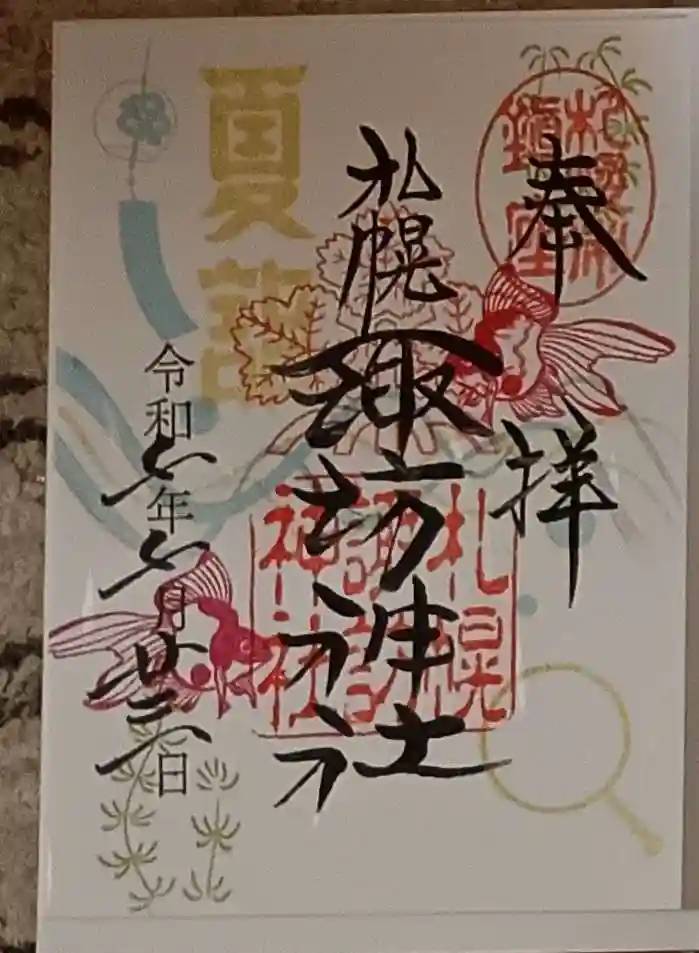 奉拝
札幌諏訪神社
札幌
諏訪
神社
夏詣
令和六年六月廿三日